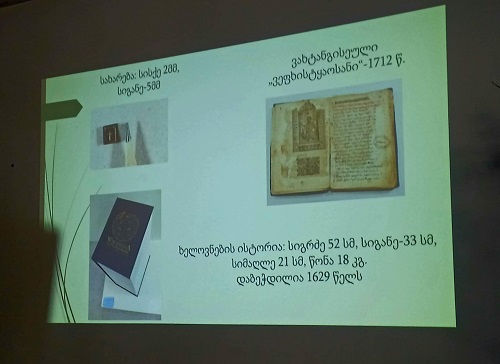 სახარება: სისქე 2მმ,
სიგანე-5მმ
ვახტანგისეული
„ვეფხისტყაოსანი“-1712 წ.
ხელოვნების ისტორია: სიგრძე 52 სმ, სიგანე-33 სმ,
სიმაღლე 21 სმ, წონა 18 კგ.
დაბეჭდილია 1629 წელს